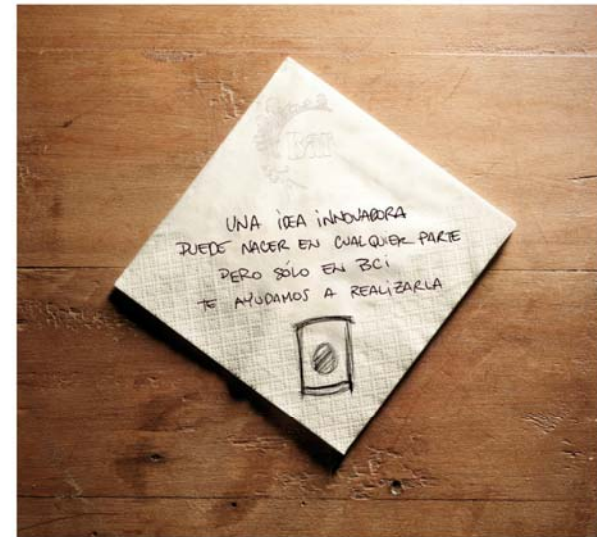 BAR
UNA IDEA INNOVADORA
PUEDE NACER EN CUALQUIER PARTE
PERO SÓLO EN BCi
TE AYUDAMOS A REALIZARLA